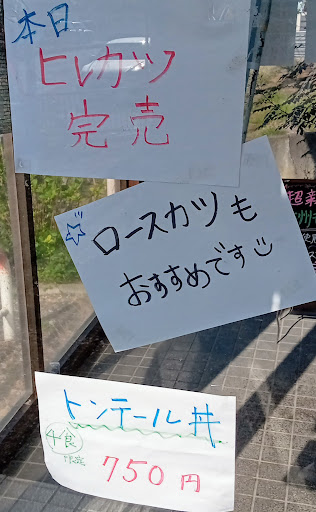 本日
ヒレカツ
完売
ロースカツも
おすすめです
トンテール丼
4食
限定
750円